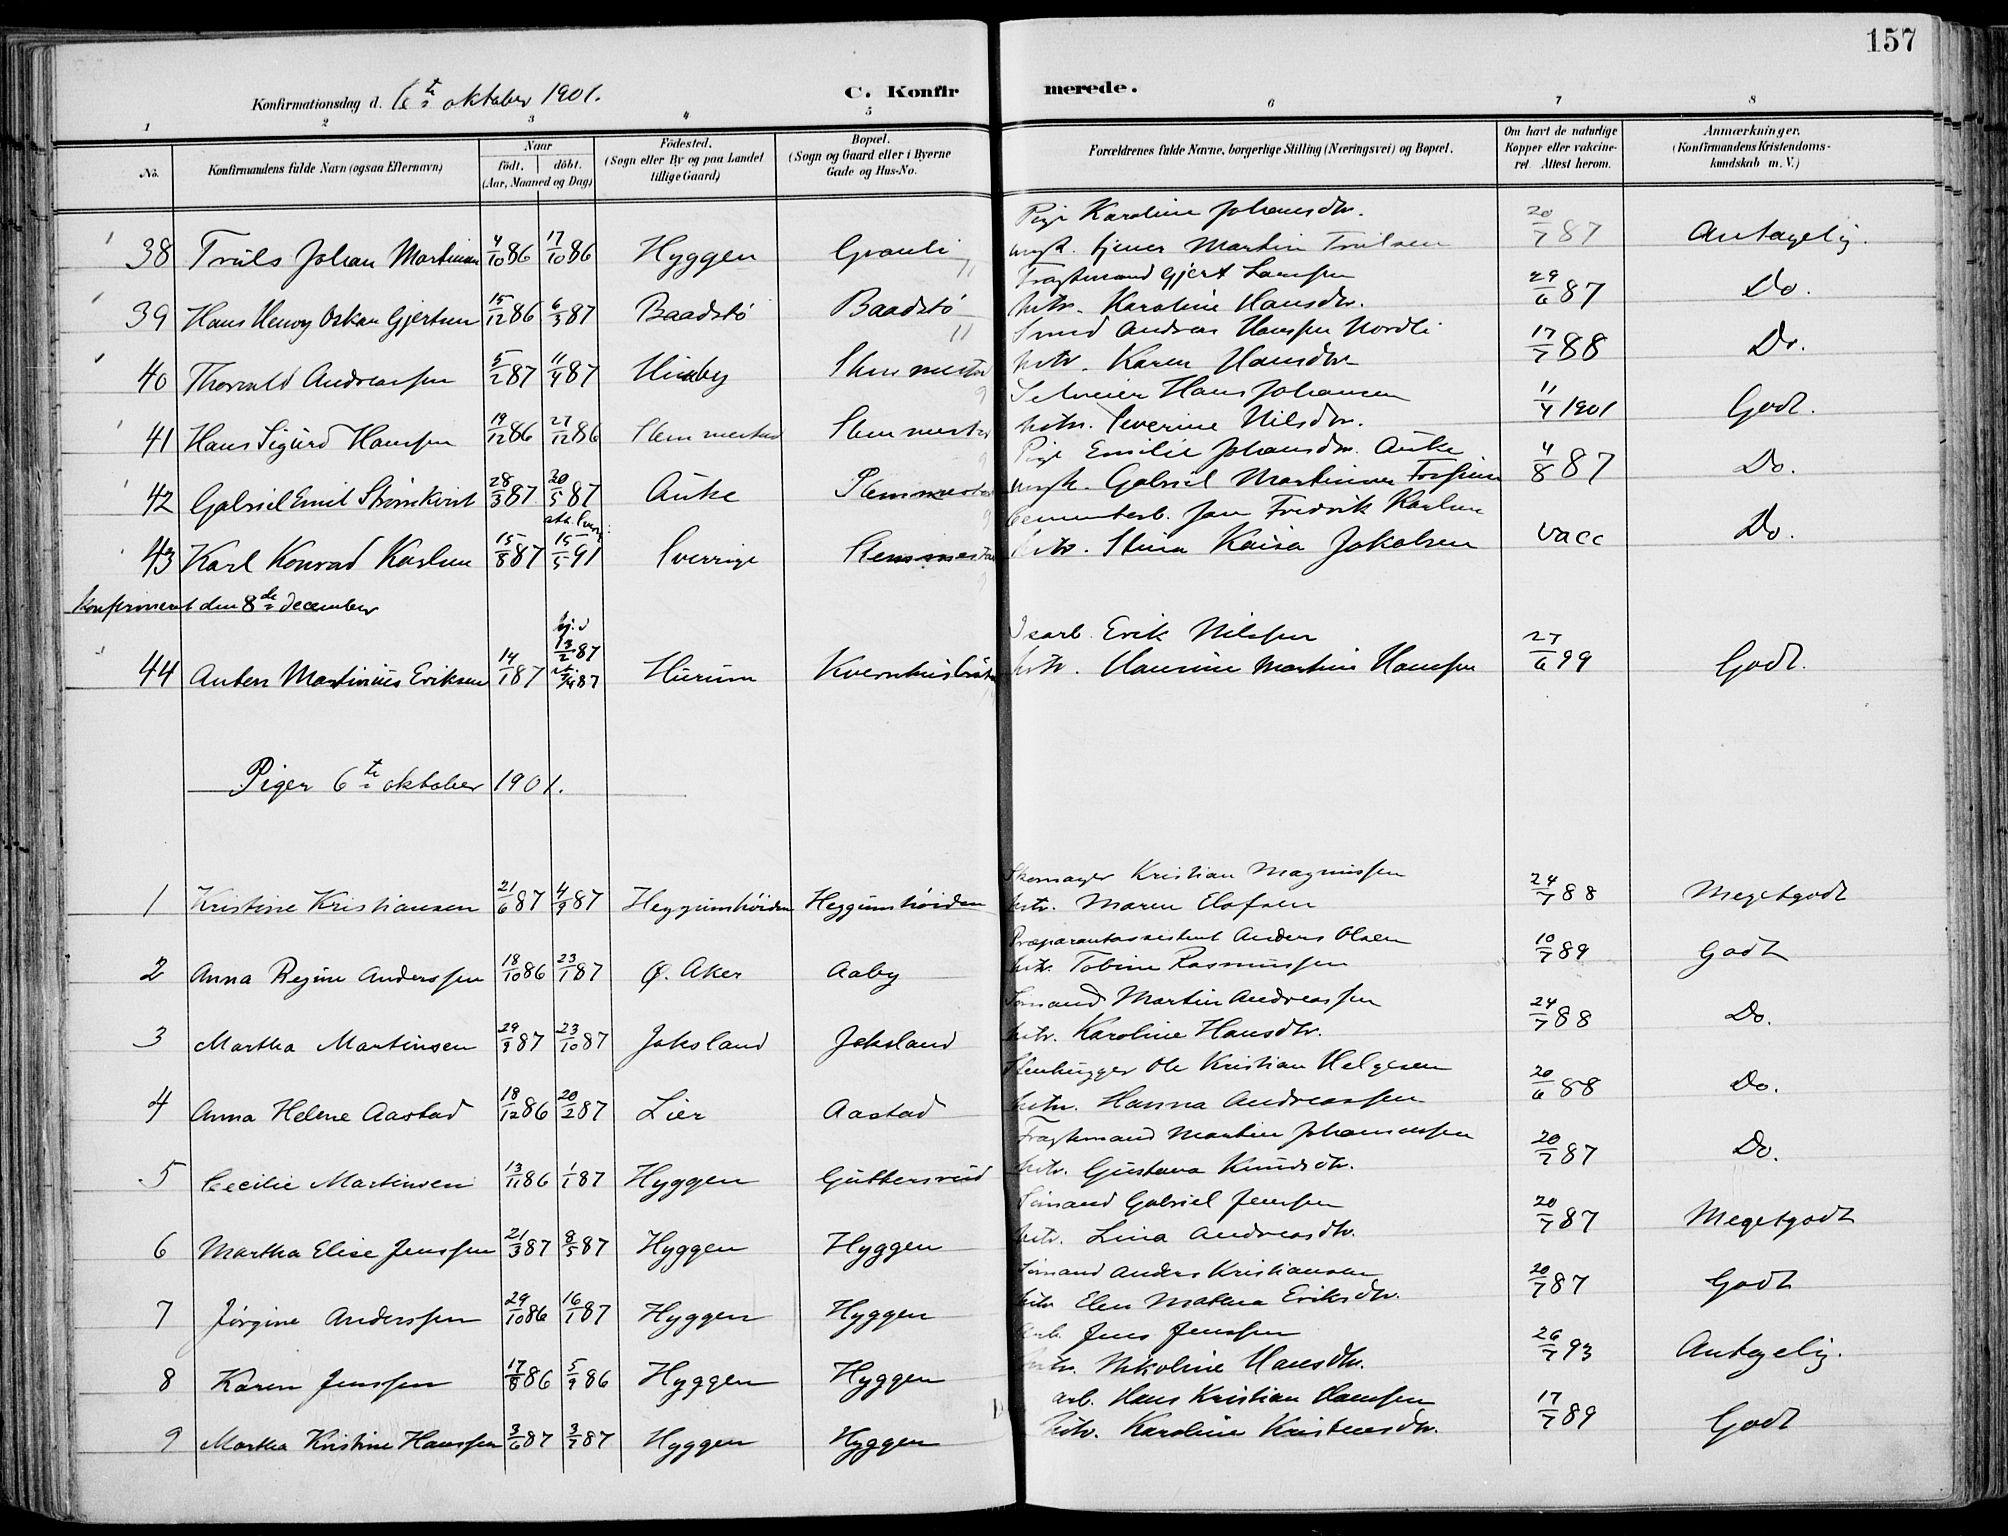 157
Konfirmationsdag d. 6te oktober 1901. C. Konfirmerede.
1 2 3 4 5 6 7 8
No. Konfirmandens fulde Navn (ogsaa Efternavn) Naar födt. döbt. (Aar, Maaned og Dag) Födested. (Sogn eller By og paa Landet tillige Gaard) Bopæl. (Sogn og Gaard eller i Byerne Gade og Hus-No. Forældrenes fulde Navne, borgerlige Stilling (Næringsvei) og Bopæl. Om havt de naturlige Kopper eller vakcineret Attest herom. Anmærkninger. (Konfirmandens Kristendomskundskab m. V.)
Pige Karoline Johansdtr.
38 Truls Johan Martinsen 4/10 86 17/10 86 Hyggen Granli ungk. tjener Martin Trulsen 20/7 87 Antagelig.
Fragtmand Gjert Larssen
39 Hans Henvy Oskar Gjertsen 15/12 86 6/3 87 Baadstö Baadstö hstr. Karoline Hansdtr. 29/6 87 Do.
Smed Andreas Hanssen Nordli
40 Thorvald Andreassen 5/2 87 11/4 87 Stenmestad hstr. Karen Hansdtr 17/7 88 Do.
Selveier Hans Johansen
41 Hans Sigurd Hanssen 19/12 86 27/12 86 Stenmestad Stenmestad hstr. Severine Nilsdtr. 11/4 1901 Godt.
Pige Emilie Johansdtr. Auke
42 Gabriel Emil 28/3 87 20/5 87 Auke Stenmestad ungk. Gabriel Martinsen 4/8 87 Do.
Cementarb. Jan Fredrik Karlsen
43 Karl Konrad Karlsen 15/8 87 15/5 91 Sverrige Stenmestad hstr. Stina Kaisa Jakobsen vacc Do.
Konfirmeret den 8de december
Isarb. Erik Nilssen
44 Anders Martinius Eriksen 14/1 87 hj.d 13/2 87 87 Hurum hstr. Martine Hanssen 27/6 99 Godt.
Piger 6te oktober 1901.
Skomager Kristian Magnussen
1 Kristine Kristiansen 21/6 87 4/9 87 Heggumshöiden Heggumshöiden hstr. Maren Elofsen 24/7 88 Megetgodt
Præparantassistent Anders Olsen
2 Anna Regine Anderssen 18/10 86 23/1 87 Ø. Aker Aaby hstr. Tobine Rasmussen 10/7 89 Godt
Sömand Martin Andreassen
3 Martha Martinsen 29/9 87 23/10 87 Joksland Joksland hstr. Karoline Hansdtr. 24/7 88 Do.
Stenhugger Ole Kristian Helgesen
4 Anna Helene Aastad 18/12 86 20/2 87 Lier Aastad hstr. Hanna Andreassen 20/6 88 Do.
Fragtemand Martin Johannessen
5 Cecilie Martinsen 13/11 86 1/1 87 Hyggen Guttersrud hstr. Gustava Knudsdtr. 20/7 87 Do.
Sömand Gabriel Jenssen
6 Martha Elise Jenssen 21/3 87 8/5 87 Hyggen Hyggen hstr. Lina Andreasdtr. 20/7 87 Megetgodt
Sömand Anders Kristiansen
7 Jørgine Anderssen 29/10 86 16/1 87 Hyggen Hyggen hstr Elen Mathea Eriksdtr. 20/7 87 Godt
Arb. Jens Jenssen
8 Karen Jenssen 17/8 86 5/9 86 Hyggen Hyggen hstr. Nikoline Hansdtr. 26/7 93 Antagelig.
arb. Hans Kristian Hanssen
9 Martha Kristine Hanssen 3/6 87 3/7 87 Hyggen Hyggen hstr. Karoline Kristensdtr. 17/7 89 Godt